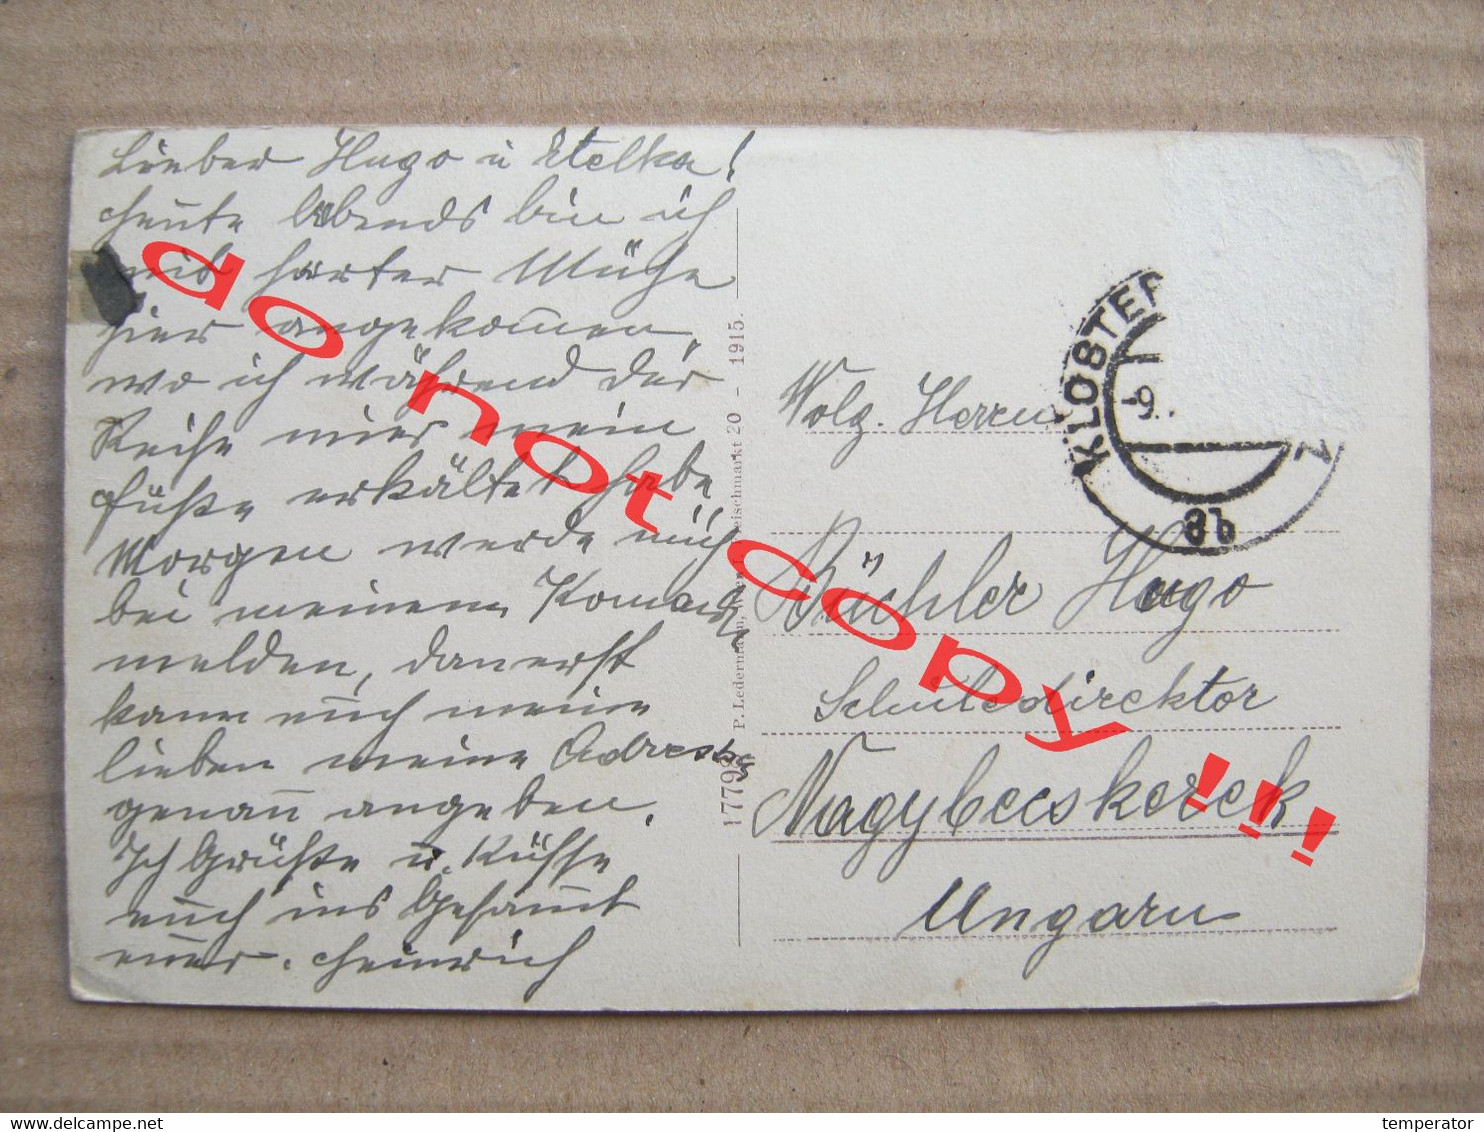 Lieber Hugo u Etelka!
Heute Abends bin ich
mit harter Mühe
hier angekommen,
wo ich während der
Reise mier mein
Füße erkältet habe
Morgen werde mich
bei meinem
melden, dan erst
kann euch meine
lieben meine Adresse
genau angeben.
Ich Grüße u. Küsse
euch ins Gesammt
euer. Heinrich
17798 P. Ledermann, Wien I, Fleischmarkt 20 - 1915.
KLOSTER
-9.
3b
Wolg. Herrn
Büchler Hugo
Schuldirektor
Nagybecskerek
Ungarn
do not copy !!!
https://www.delcampe.net
temperator